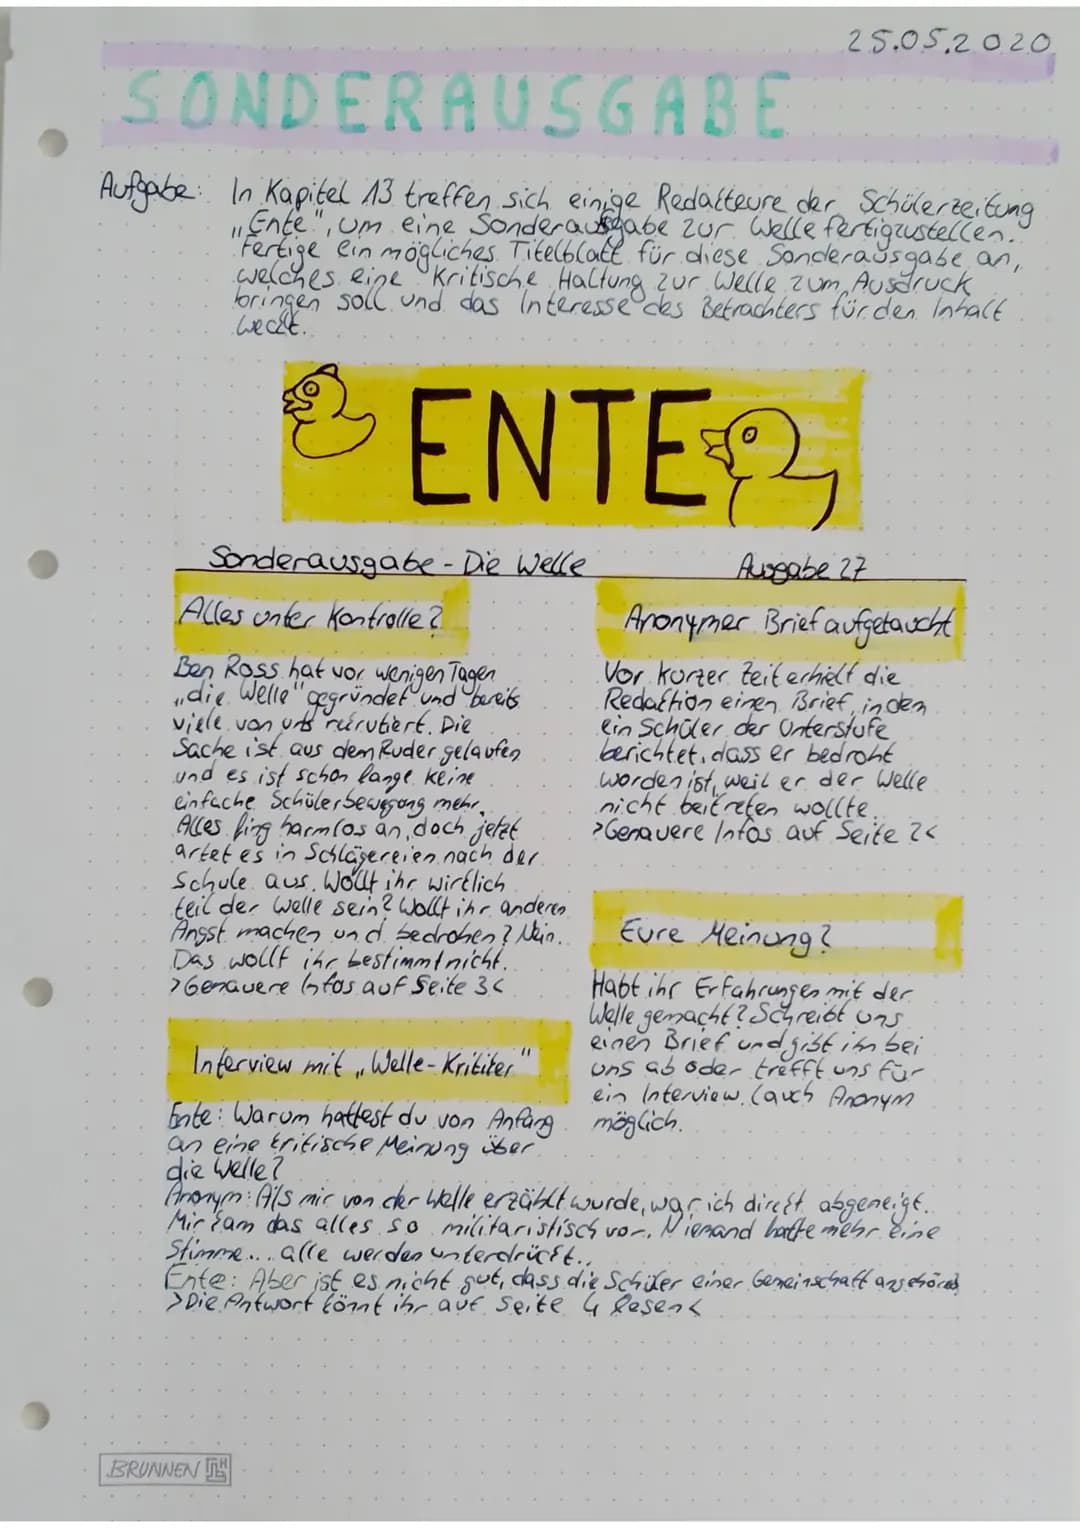 25.05.2020
SONDERAUSGABE
Aufgabe: In Kapitel 13 treffen sich einige Redakteure der Schülerzeitung
„Ente", um eine Sonderausgabe zur Welle fertigzustellen.
Fertige ein mögliches Titelblatt für diese Sonderausgabe an,
welches eine kritische Haltung zur Welle zum Ausdruck
bringen soll und das Interesse des Betrachters für den Inhalt
weckt.
ENTE
Sonderausgabe - Die Welle Ausgabe 27
Alles unter Kontrolle?
Ben Ross hat vor wenigen Tagen
„die Welle" gegründet und bereits
viele von uns rekrutiert. Die
Sache ist aus dem Ruder gelaufen
und es ist schon lange keine
einfache Schülerbewegung mehr.
Alles fing harmlos an, doch jetzt
artet es in Schlägereien nach der
Schule aus. Wollt ihr wirklich
teil der Welle sein? Wollt ihr anderen
Angst machen und bedrohen? Nein.
Das wollt ihr bestimmt nicht.
>Genauere Infos auf Seite 3<
Anonymer Brief aufgetaucht
Vor kurzer Zeit erhielt die
Redaktion einen Brief, in dem
ein Schüler der Unterstufe
berichtet, dass er bedroht
worden ist, weil er der Welle
nicht beitreten wollte.
>Genauere Infos auf Seite 2<
Eure Meinung?
Habt ihr Erfahrungen mit der
Welle gemacht? Schreibt uns
einen Brief und gibt ihn bei
uns ab oder trefft uns für
ein Interview. (auch Anonym
möglich.
Interview mit „Welle-Kritiker"
Ente: Warum hattest du von Anfang
an eine kritische Meinung über
die Welle?
Anonym: Als mir von der Welle erzählt wurde, war ich direkt abgeneigt.
Mir kam das alles so militaristisch vor. Niemand hatte mehr eine
Stimme... alle werden unterdrückt..
Ente: Aber ist es nicht gut, dass die Schüler einer Gemeinschaft angehören
>Die Antwort könnt ihr auf Seite 4 lesen<
BRUNNEN